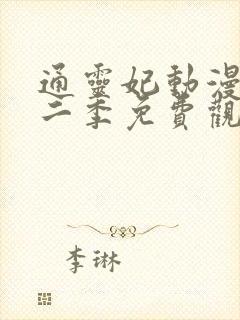 通靈妃動漫
二季免費觀
李琳